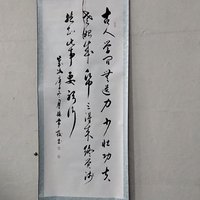 古人学问无遗力少壮功夫
老始成纸上得来终觉浅
绝知此事要躬行